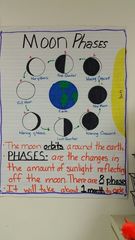 Moon Phases
First Quarter
Waxing Crescent
Full Moon
New Moon
Waning Gibbous
Last Quarter
Waning Crescent
The moon orbits around the earth.
PHASES: are the changes in
the amount of sunlight reflecting
off the moon. There are 8 phases
It will take about 1 month to cycle